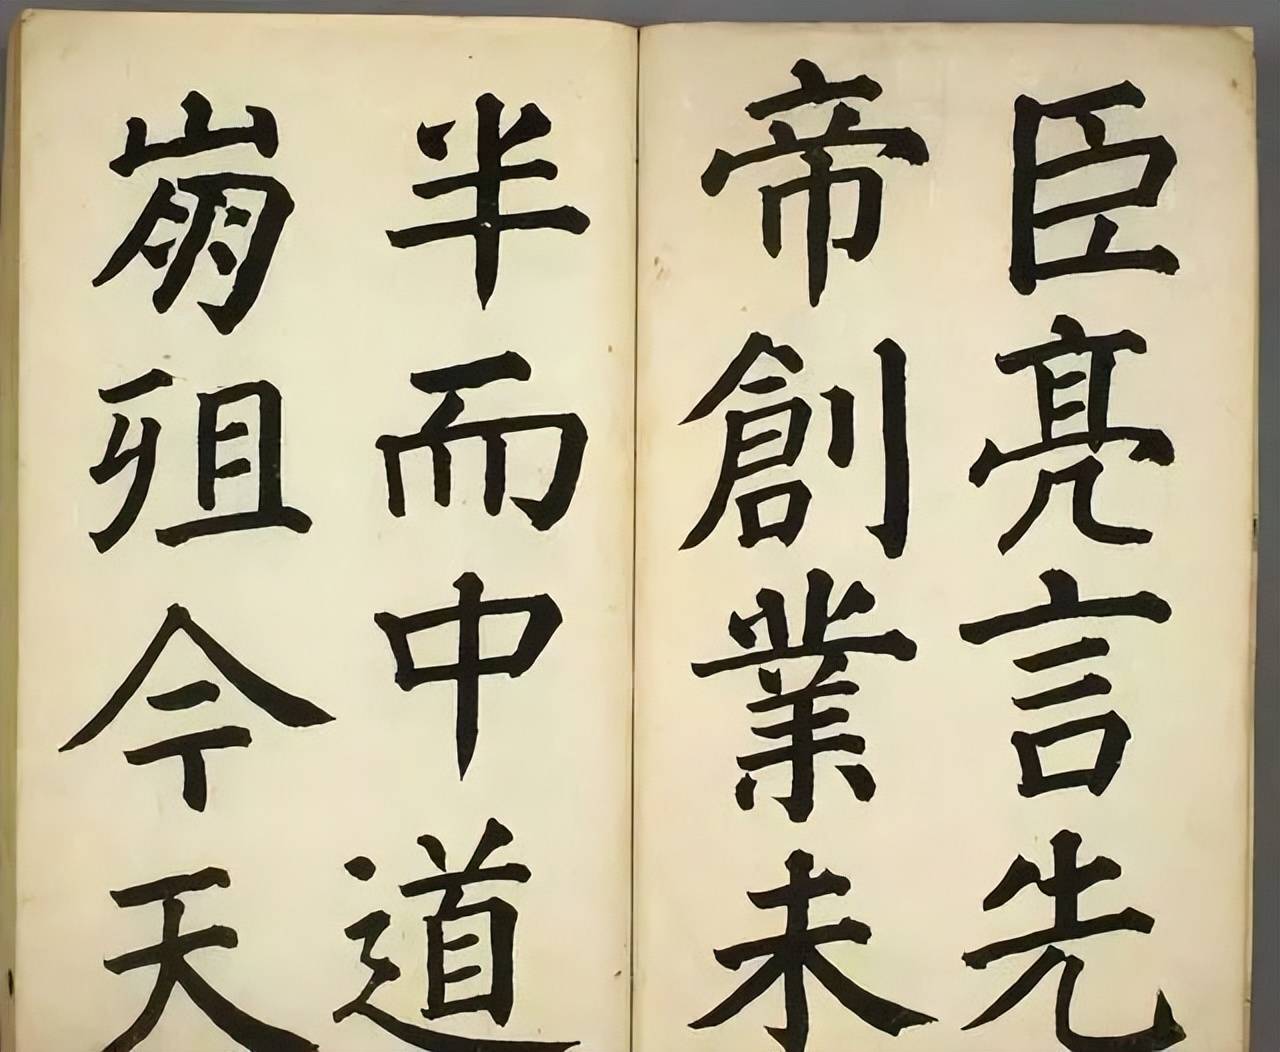 臣亮言先
帝創業未
半而中道
崩殂今天